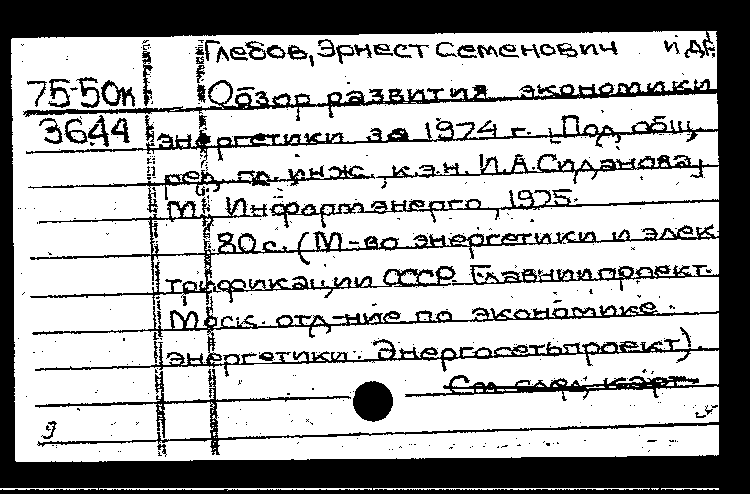 Глебов, Эрнест Семенович и др.
75-50к Обзор развития экономики
3644 энергетики за 1974 г. [Под общ.
ред. гл. инж., к.э.н. И.А.Сиданова]
М., Информэнерго, 1975.
80 с. (М-во энергетики и элек
трификации СССР. Главниипроект.
Моск. отд-ние по экономике
энергетики. Энергосетьпроект).
См. след. карт.
9